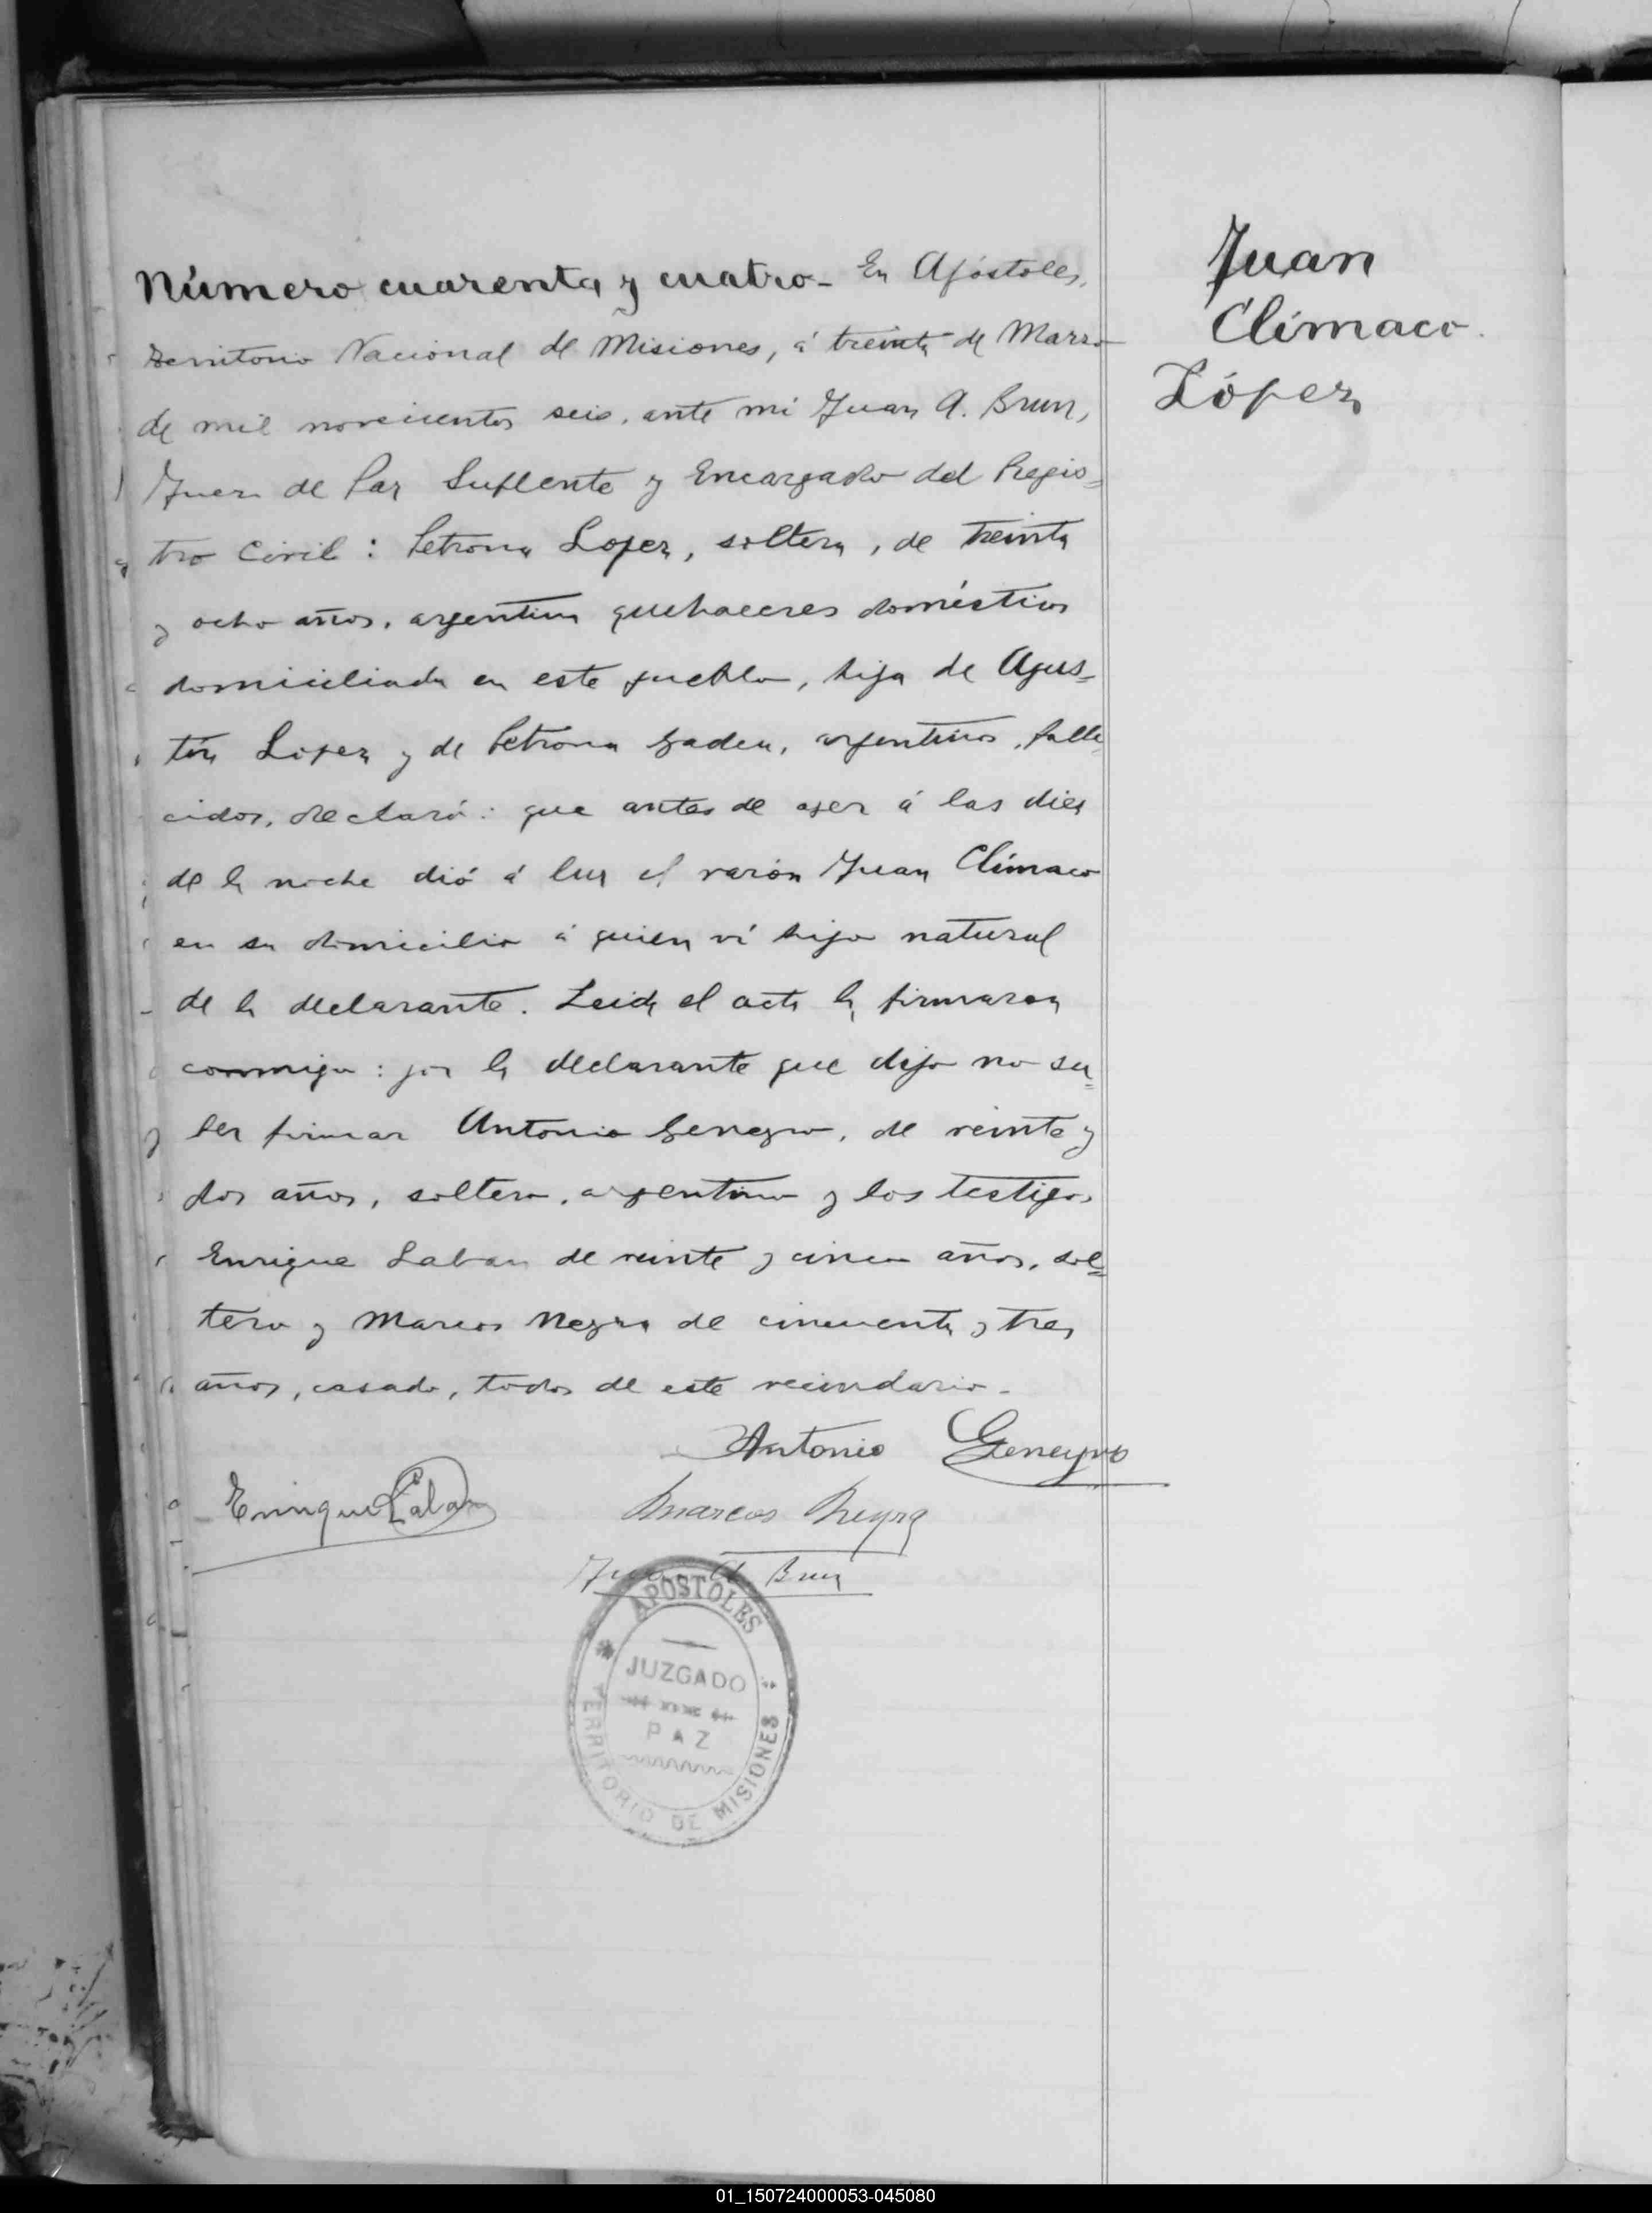 Número cuarenta y cuatro- En Apóstoles,
territorio Nacional de Misiones, á treinta de Marzo
de mil novecientos seis, ante mi Juan A. Brun,
Juez de Paz Suplente y Encargado del Regis=
tro Civil: Petrona Lopez, soltera, de treinta
y ocho años, argentina quehaceres domésticos
domiciliada en este pueblo, hija de Agus=
tín Lopez y de Petrona, argentinos, falle
cidos, declaró: que antes de ayer á las diez
de la noche dió á luz el varón Juan Clímaco
en su domicilio á quien ví hijo natural
de la declarante. Leida el acta la firmaron
conmigo: por la declarante que dijo no sa=
ber firmar Antonio Geneyro, de veinte y
dos años, soltero, argentino y los testigos
Enrique Laban de veinte y cinco años, sol=
tero y Marcos Neyra de cincuenta y tres
años, casado, todos de este vecindario-
Antonio Geneyro
Enrique Laban
Marcos Neyra
Juan A. Brun
APOSTOLES
JUZGADO
PAZ
TERRITORIO DE MISIONES
Juan
Clímaco
López
01_150724000053-045080